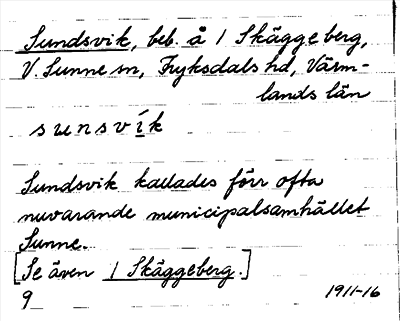 Sundsvik, beb. å 1 Skäggeberg,
V. Sunne sn, Fryksdals hd, Värm-
lands län
sunsvík
Sundsvik kallades förr ofta
nuvarande municipalsamhället
Sunne.
[Se även 1 Skäggeberg.]
9 1911-16